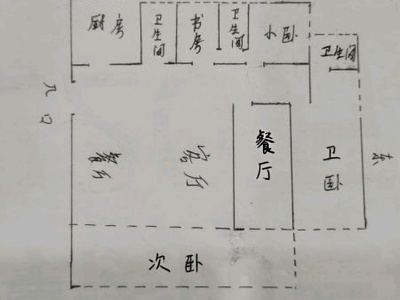 厨房
卫生间
书房
卫生间
小卧
卫生间
入口
餐厅
客厅
餐厅
卫卧
东
次卧